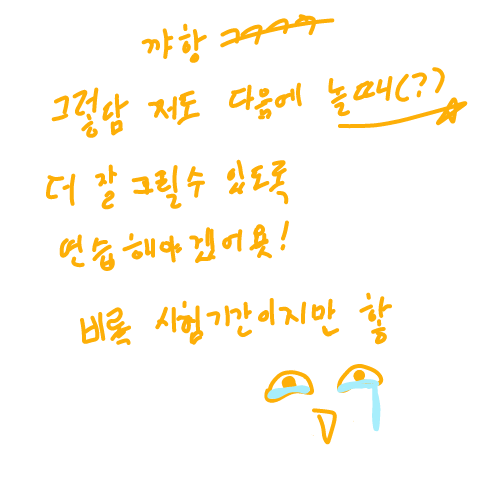 꺄항 ㅋㅋㅋㅋ
그렇담 저도 다음에 놀때(?)
더 잘 그릴수 있도록
연습해야겠어욧!
비록 시험기간이지만 힣